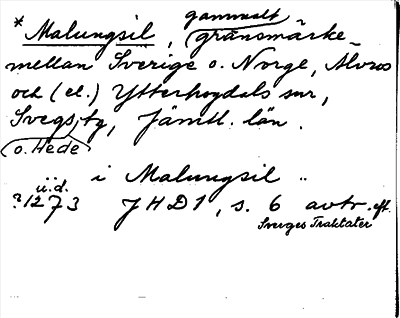 * Malungsil, gammalt gränsmärke
mellan Sverige o. Norge, Älvros
och (el.) Ytterhogdals snr,
Svegs tg, Jämtl. län.
o. Hede
i Malungsil ..
?1273 u.d. JHD1, s. 6 avtr. eft.
Sveriges Traktater